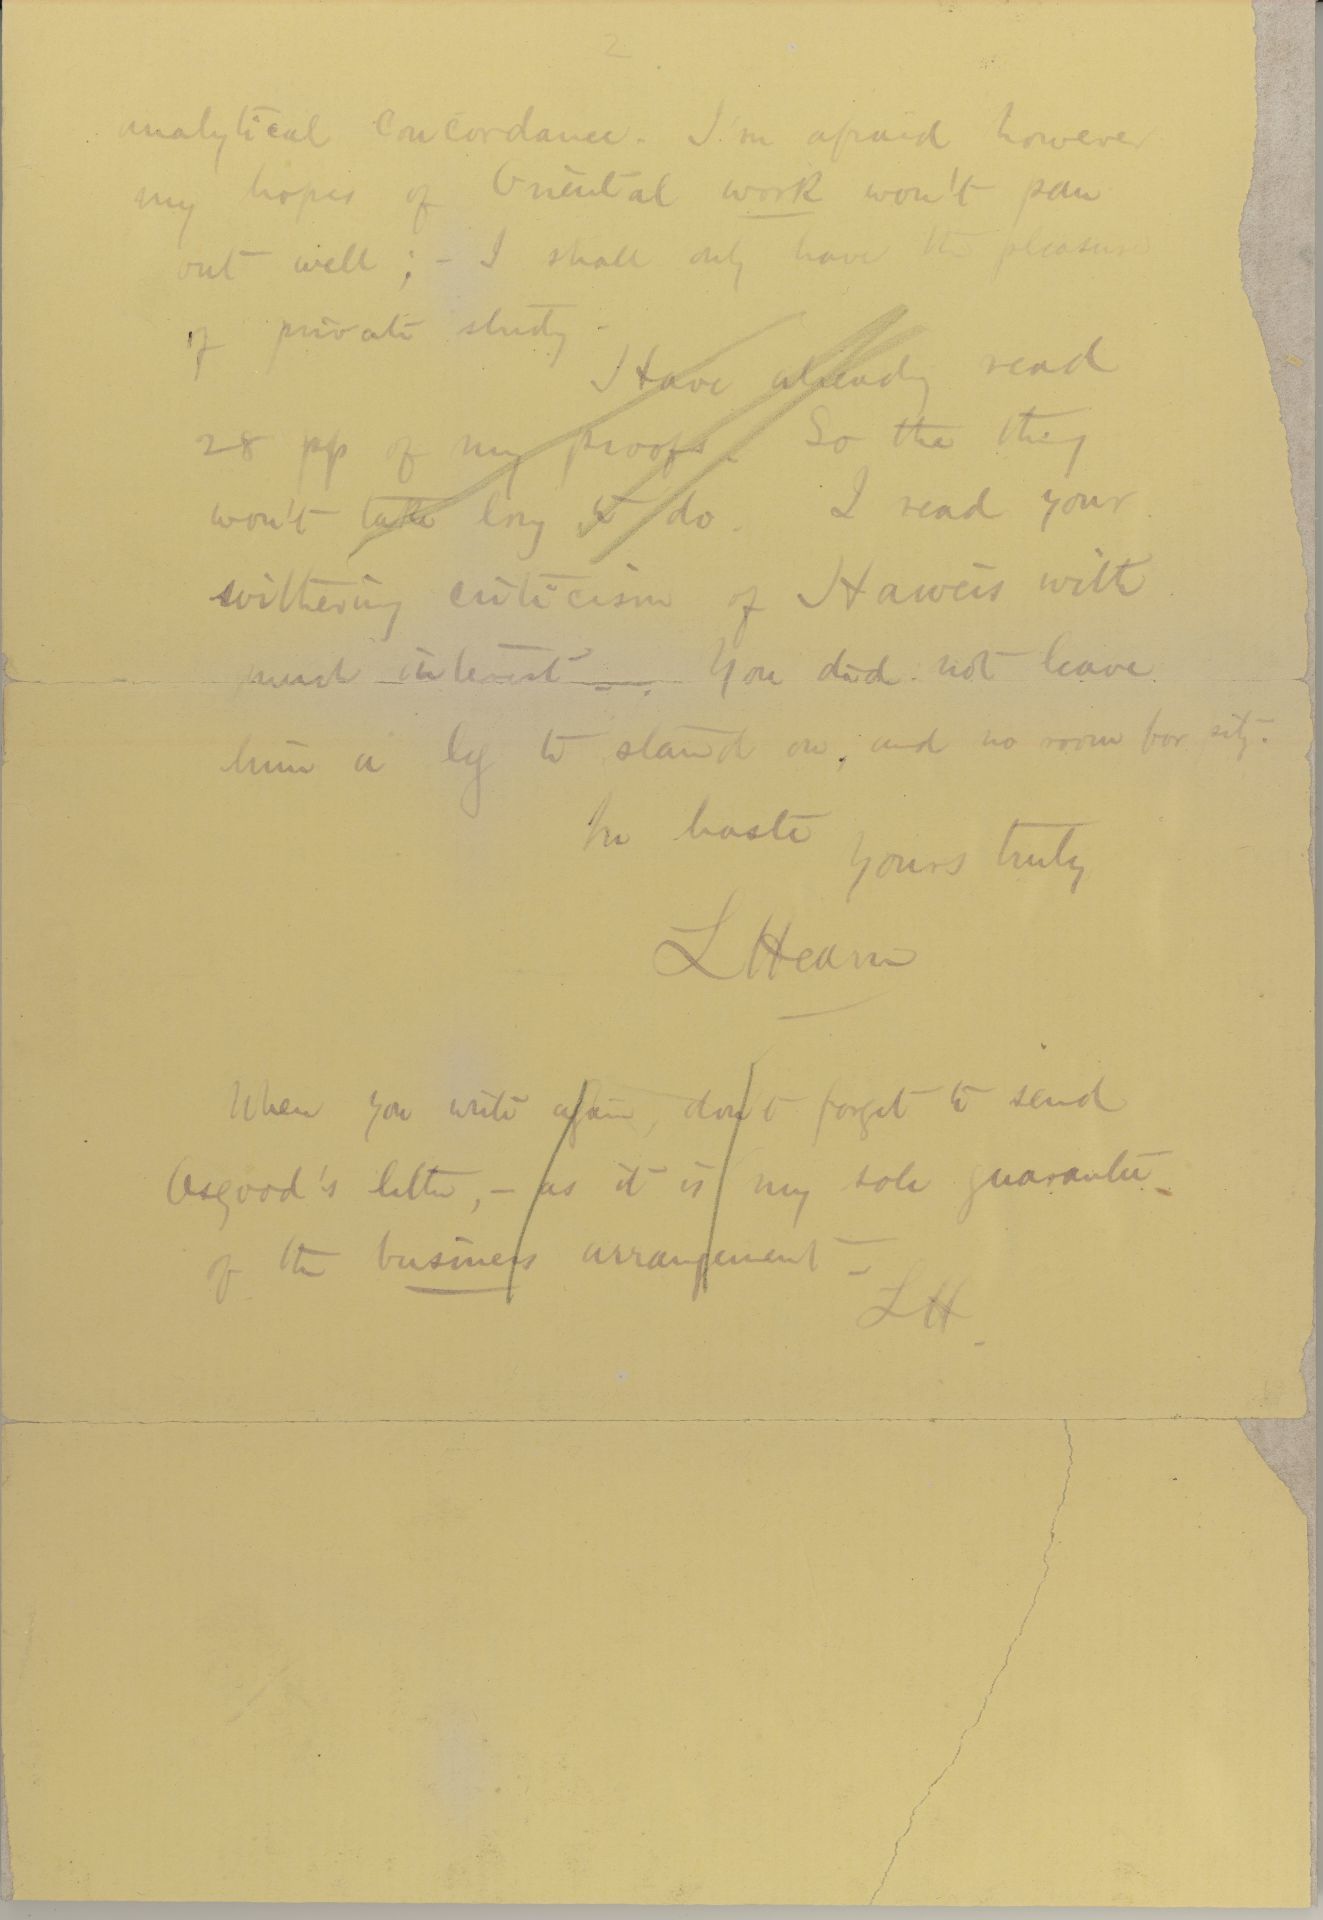 2
analytical concordance. I'm afraid however
my hopes of Oriental work won't pan
out well; - I shall only have the pleasure
of private study -
Have already read
28 pp of my proofs. So the thing
won't take long to do. I read your
withering criticism of Haweis with
much interest -. You did not leave
him a leg to stand on, and no room for
In haste
yours truly
L Hearn
When you write again, don't forget to send
Osgood's letter, - as it is my sole guarantee
of the business arrangement -
LH.